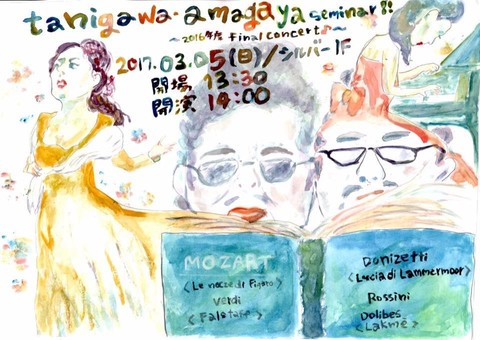 tanigawa・amagaya seminar!!
〜2016年度 final concert♪〜
2017.03.05(日)/シルバー1F
開場 13:30
開演 14:00
MOZART
<Le nozze di Figaro>
Verdi
<Falstaff>
Donizetti
<Lucia di Lammermoor>
Rossini
Dolibes
<Lakmé>